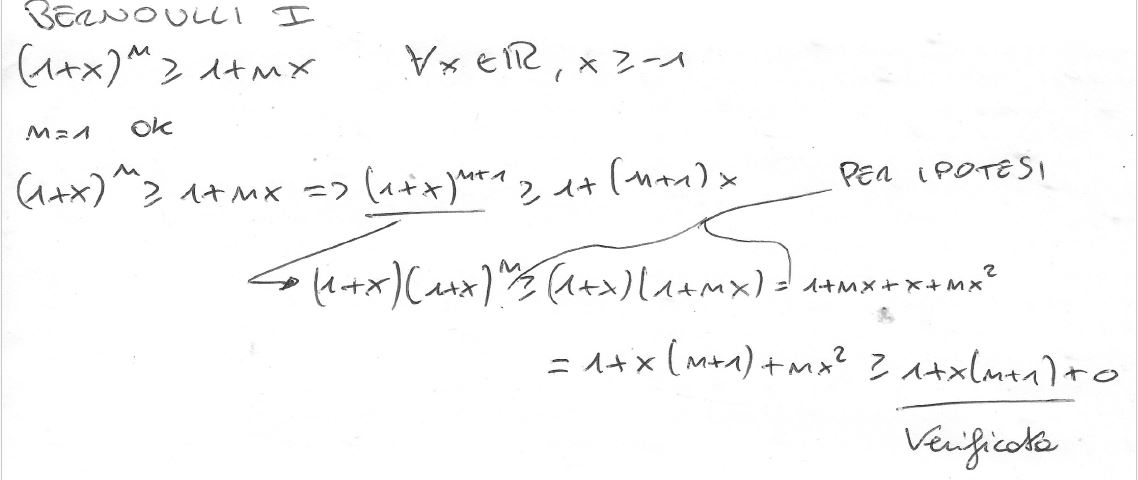 BERNOULLI I
(1+x)^n ≥ 1+nx ∀x ∈ ℝ, x ≥ -1
n=1 OK
(1+x)^n ≥ 1+nx => (1+x)^{n+1} ≥ 1+(n+1)x PER IPOTESI
(1+x)(1+x)^n ≥ (1+x)(1+nx) = 1+nx+x+nx²
= 1+x(n+1)+nx² ≥ 1+x(n+1)+0
Verificata